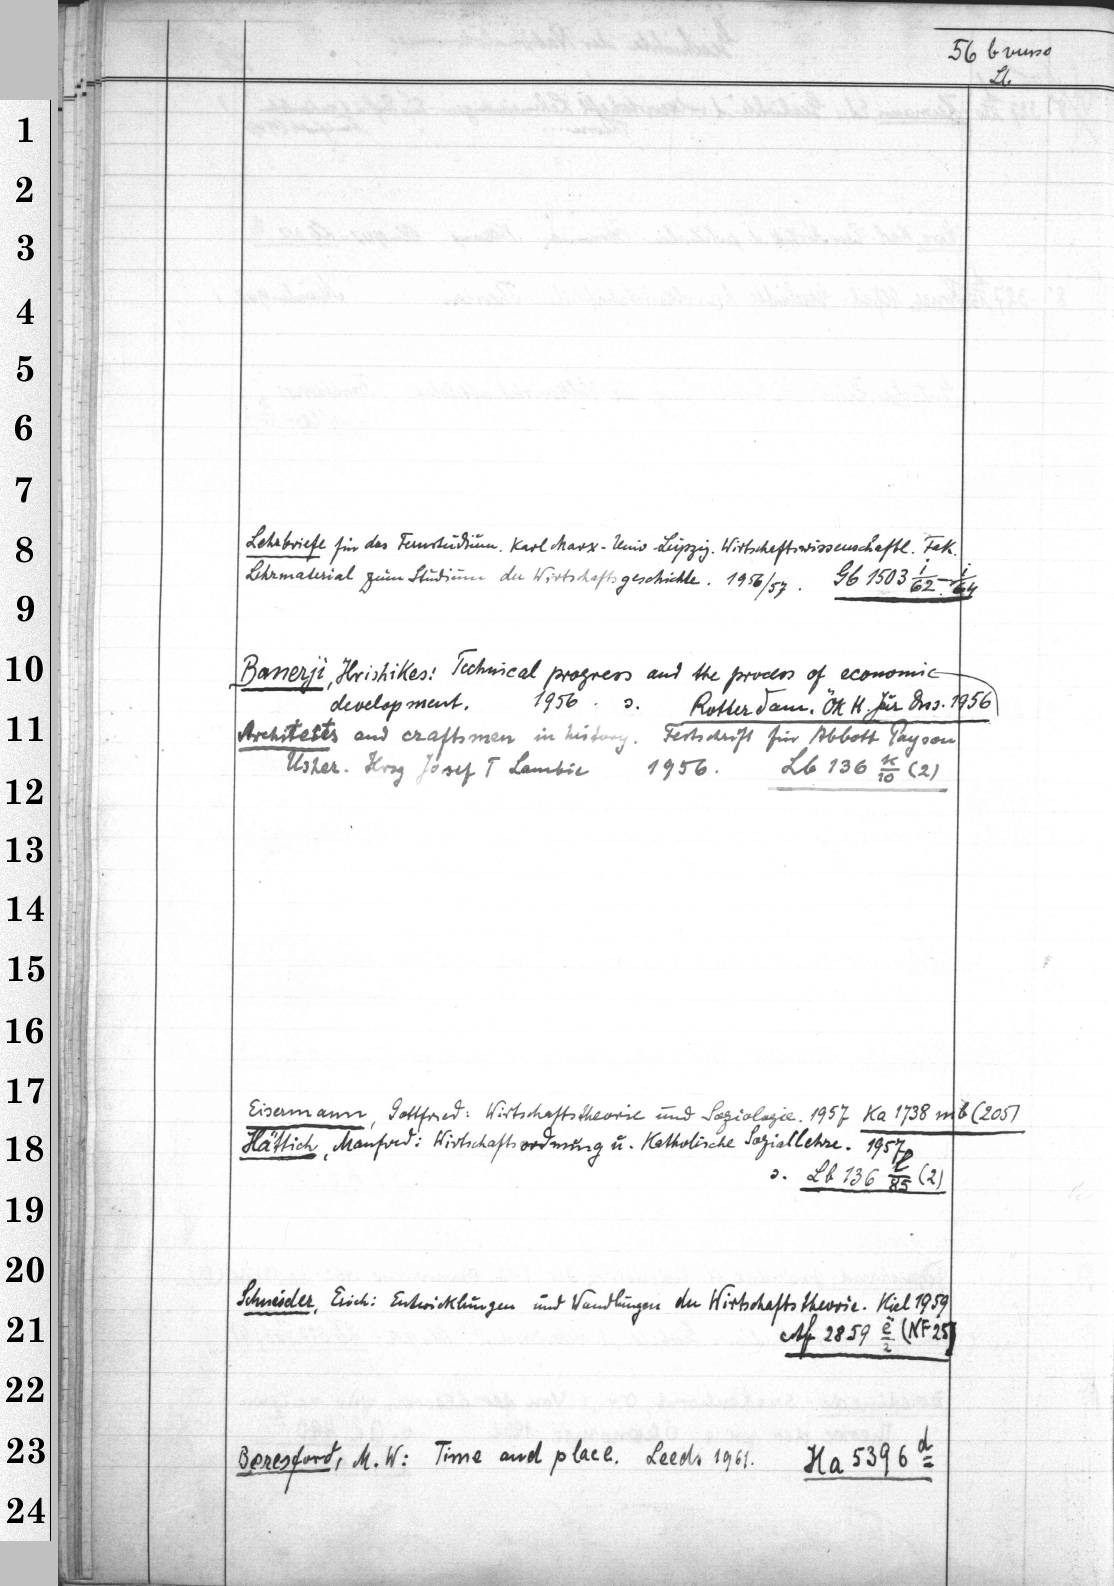 56 b verso
Lb
1
2
3
4
5
6
7
8
9
10
11
12
13
14
15
16
17
18
19
20
21
22
23
24
Lehrbriefe für das Fernstudium. Karl Marx-Univ Leipzig. Wirtschaftswissenschaftl. Fak.
Lehrmaterial zum Studium der Wirtschaftsgeschichte. 1956/57. Gb 1503 i/62-i/64
Banerji, Hrishikes: Technical progress and the process of economic
development. 1956. s. Rotterdam. Ök H. Jur Diss. 1956
Architects and craftsmen in history. Festschrift für Abbott Payson
Usher. Hrsg Josef T Lambie 1956. Lb 136 k/10 (2)
Eisermann, Gottfried: Wirtschaftstheorie und Soziologie. 1957 Ka 1738 mb (205)
Hättich, Manfred: Wirtschaftsordnung u. Katholische Soziallehre. 1957
s. Lb 136 l/85 (2)
Schneider, Erich: Entwicklungen und Wandlungen der Wirtschaftstheorie. Kiel 1959
Af 2859 ë/2 (NF 25)
Beresford, M. W: Time and place. Leeds 1961. Ha 5396 d